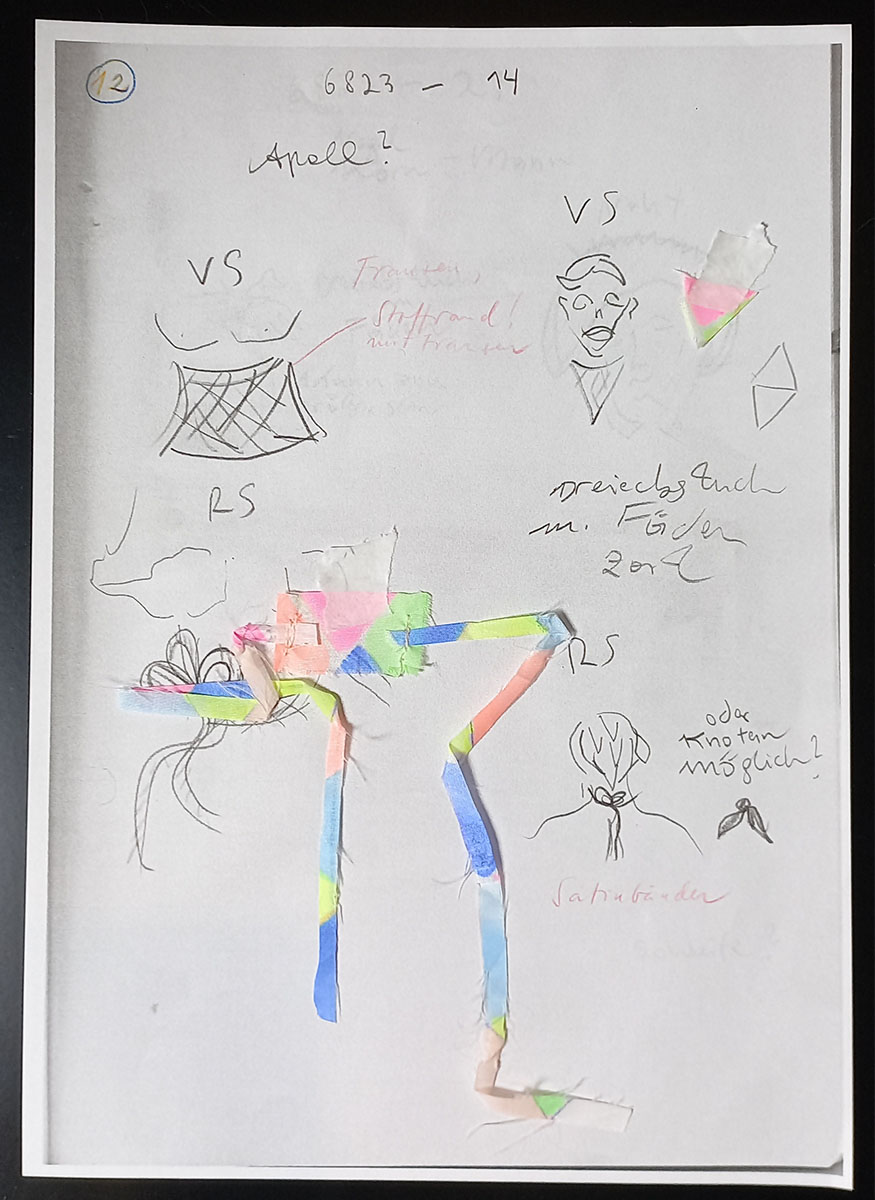 12
6823 – 14
Apoll?
VS
VS
Fransen,
Stoffrand!
mit Fransen
RS
Dreieckstuch
m. Fäden
RS
oder
Knoten
möglich?
Satinbänder